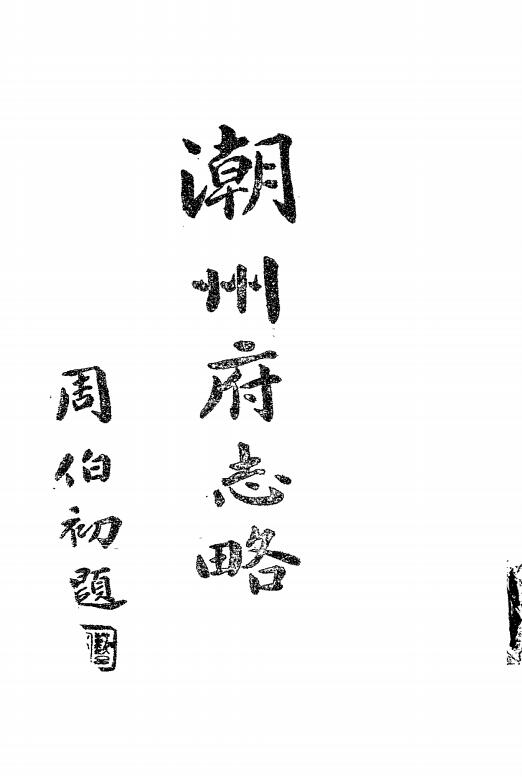 潮州府志略
周伯初題